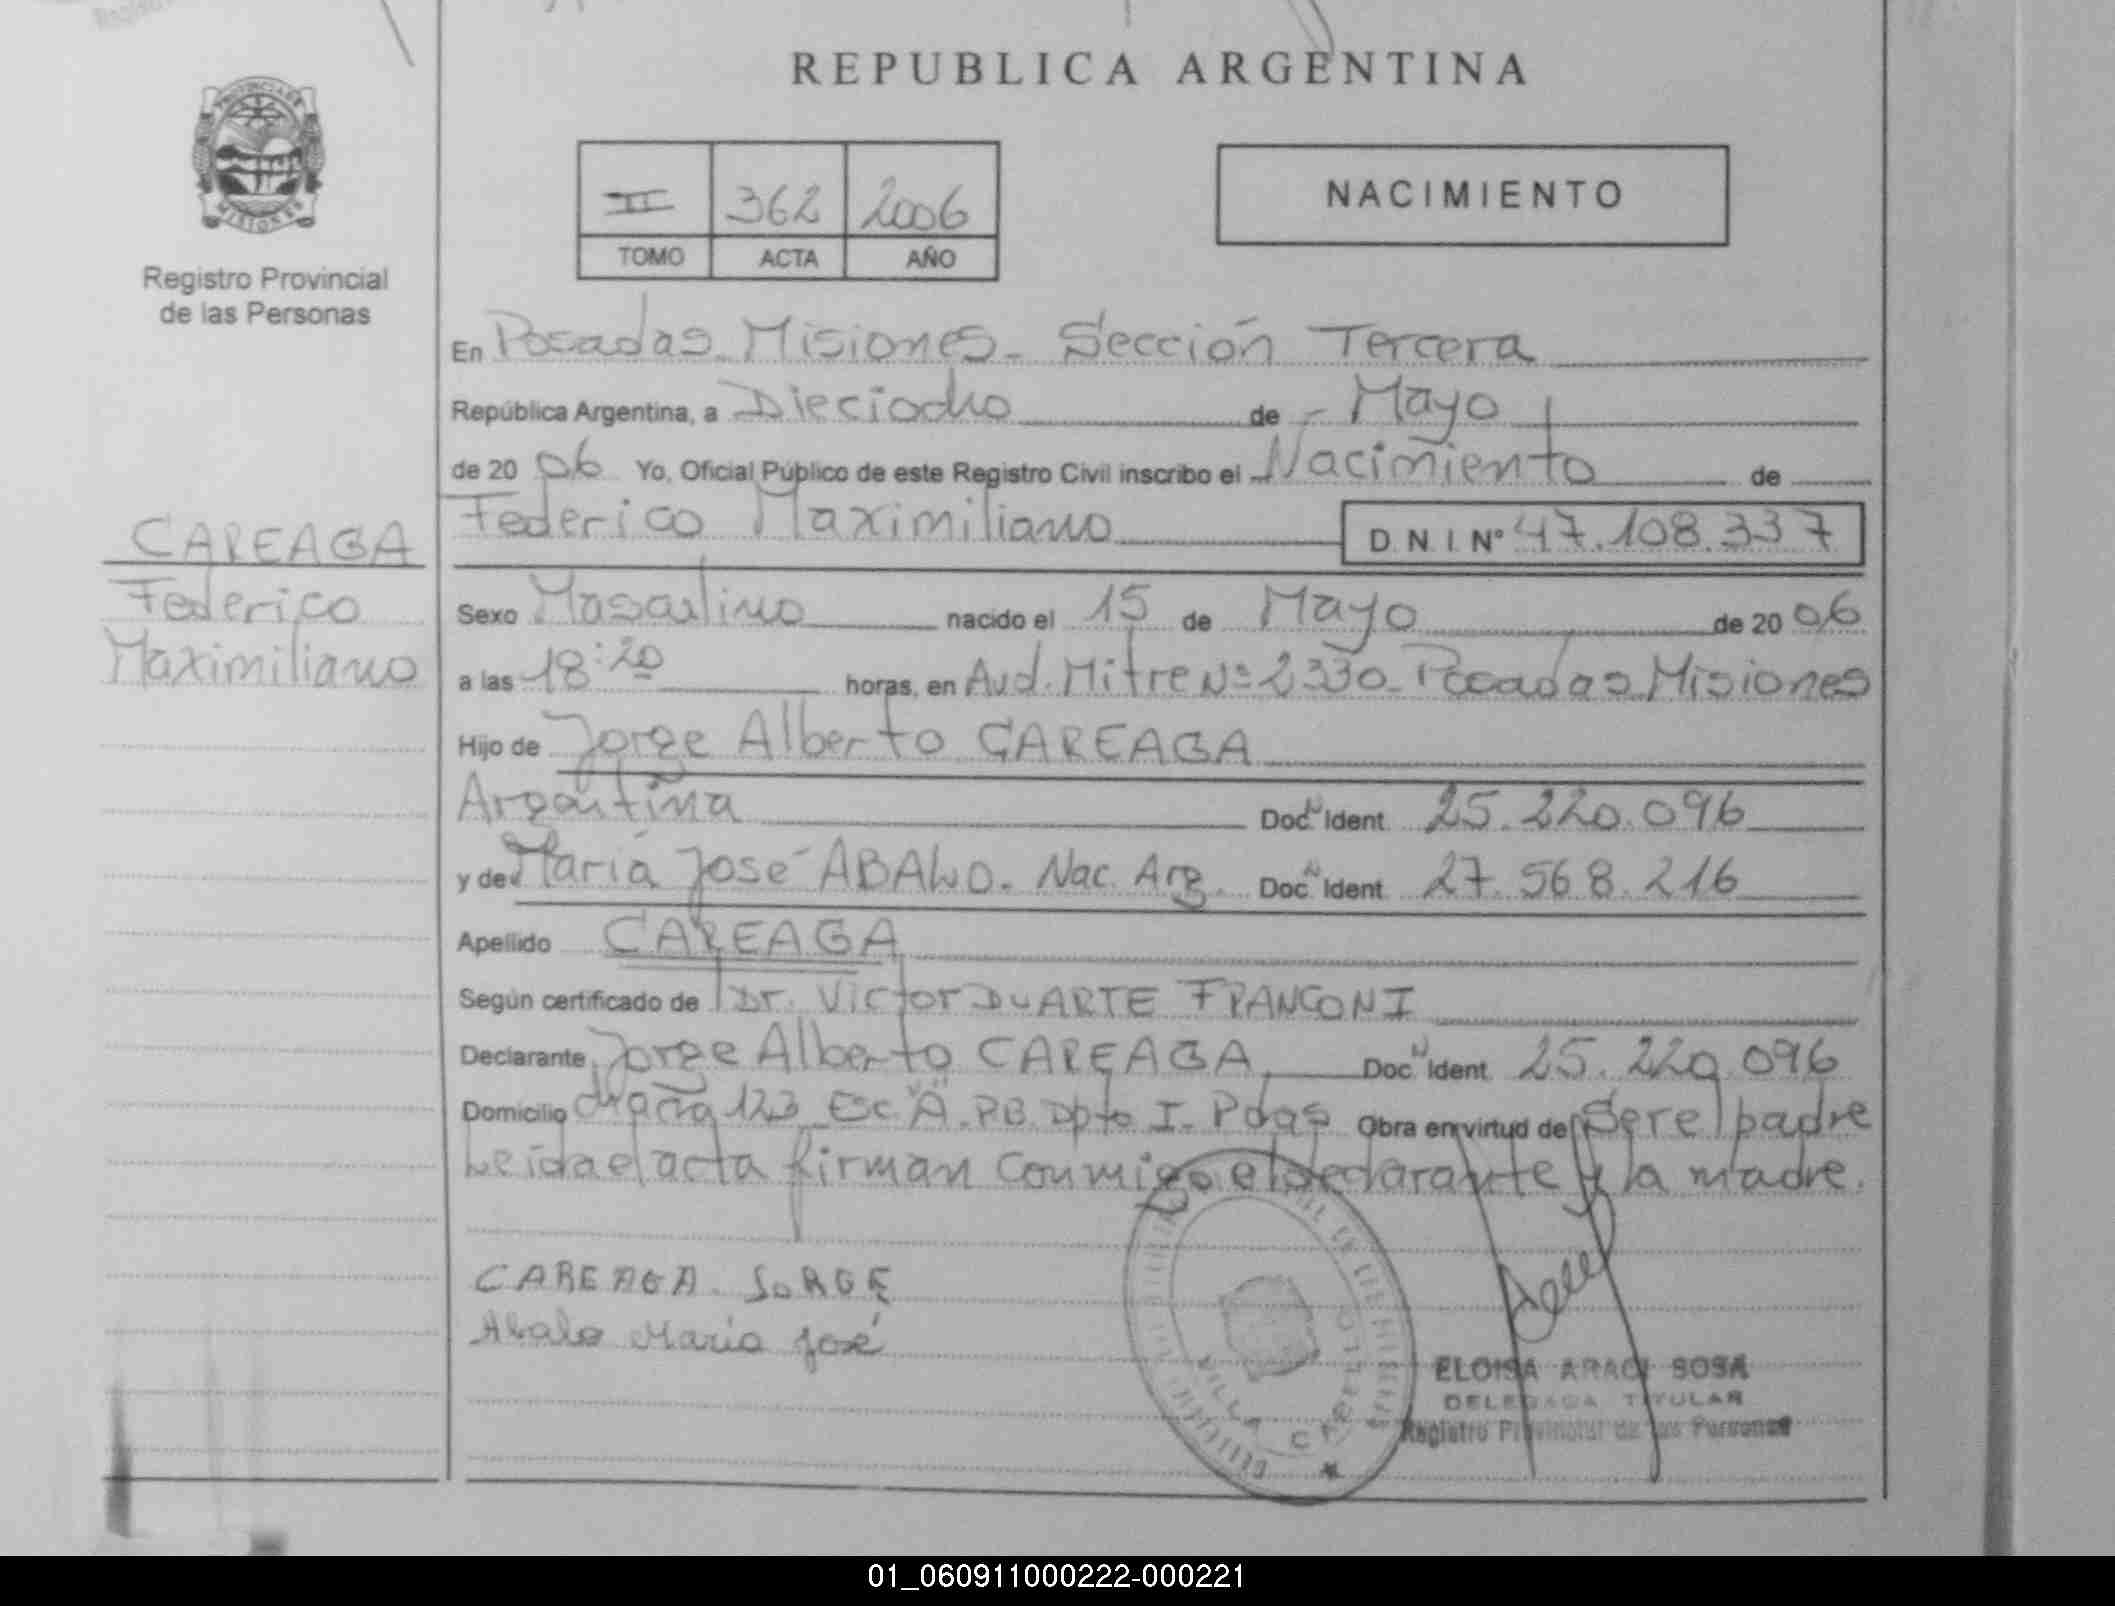 REPUBLICA ARGENTINA
PROVINCIA DE
MISIONES
Registro Provincial
de las Personas
II 362 2006
TOMO ACTA AÑO
NACIMIENTO
En Posadas Misiones - Sección Tercera
República Argentina, a Dieciocho de Mayo
de 20 06 Yo, Oficial Público de este Registro Civil inscribo el Nacimiento de
Federico Maximiliano D.N.I. Nº 47.108.337
CAREAGA
Federico
Maximiliano
Sexo Masculino nacido el 15 de Mayo de 20 06
a las 18:20 horas, en Avd. Mitre Nº 2330 - Posadas Misiones
Hijo de Jorge Alberto CAREAGA
Argentina Doc. Ident. 25.220.096
y de María José ABALO. Nac. Arg. Doc. Ident. 27.568.216
Apellido CAREAGA
Según certificado de Dr. Victor DUARTE FRANCONI
Declarante Jorge Alberto CAREAGA Doc. Ident. 25.220.096
Domicilio 123 Esc "A". P.B. Dpto I - Pdas Obra en virtud de Ser el padre
Leída el acta firman conmigo el declarante y la madre.
CAREAGA JORGE
Abalo María José
VILLA CABELLO
ELOISA ARACI SOSA
DELEGADA TITULAR
Registro Provincial de las Personas
01_060911000222-000221